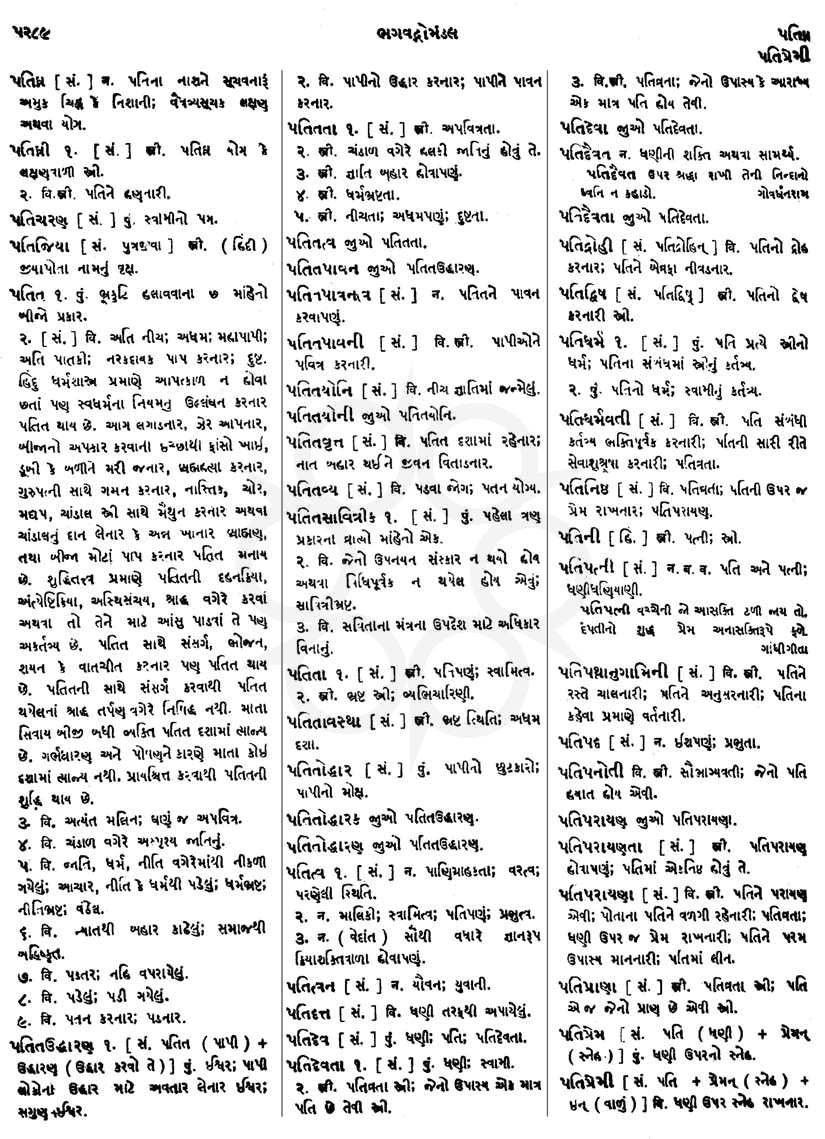 ૫૨૮૯
ભગવદ્ગોમંડલ
પતિઘ્ન
પતિપ્રેમી
પતિઘ્ન [ સં. ] ન. પતિના નાશને સૂચવનારૂં
અમુક ચિહ્ન કે નિશાની; વૈધવ્યસૂચક લક્ષણ
અથવા યોગ.
પતિઘ્ની ૧. [ સં. ] સ્ત્રી. પતિઘ્ન યોગ કે
લક્ષણવાળી સ્ત્રી.
૨. વિ.સ્ત્રી. પતિને હણનારી.
પતિચરણ [ સં. ] પું. સ્વામીનો પગ.
પતિજિયા [ સં. પુત્રજીવા ] સ્ત્રી. ( હિંદી )
જીયાપોતા નામનું વૃક્ષ.
પતિત ૧. પું. ભ્રૂકુટિ હલાવવાના ૭ માંહેનો
બીજો પ્રકાર.
૨. [ સં. ] વિ. અતિ નીચ; અધમ; મહાપાપી;
અતિ પાતકી; નરકદાયક પાપ કરનાર; દુષ્ટ.
હિંદુ ધર્મશાસ્ત્ર પ્રમાણે આપત્કાળ ન હોવા
છતાં પણ સ્વધર્મના નિયમનુ ઉલ્લંઘન કરનાર
પતિત થાય છે. આગ લગાડનાર, ઝેર આપનાર,
બીજાનો અપકાર કરવાના ઇચ્છાથી ફાંસો ખાઈ,
ડૂબી કે બળીને મરી જનાર, બ્રહ્મહત્યા કરનાર,
ગુરુપત્ની સાથે ગમન કરનાર, નાસ્તિક, ચોર,
મદ્યપ, ચાંડાલ સ્ત્રી સાથે મૈથુન કરનાર અથવા
ચાંડાલનું દાન લેનાર કે અન્ન ખાનાર બ્રાહ્મણ,
તથા બીજાં મોટાં પાપ કરનાર પતિત મનાય
છે. શુદ્ધિતત્ત્વ પ્રમાણે પતિતની દહનક્રિયા,
અંત્યેષ્ટિક્રિયા, અસ્થિસંચય, શ્રાદ્ધ વગેરે કરવાં
અથવા તો તેને માટે આંસુ પાડવાં તે પણ
અકર્તવ્ય છે. પતિત સાથે સંસર્ગ, ભોજન,
શયન કે વાતચીત કરનાર પણ પતિત થાય
છે. પતિતની સાથે સંસર્ગ કરવાથી પતિત
થયેલનાં શ્રાદ્ધ તર્પણ વગેરે નિષિદ્ધ નથી. માતા
સિવાય બીજી બધી વ્યક્તિ પતિત દશામાં ત્યાજ્ય
છે. ગર્ભધારણ અને પોષણને કારણે માતા કોઈ
દશામાં ત્યાજ્ય નથી. પ્રાયશ્ચિત્ત કરવાથી પતિતની
શુદ્ધિ થાય છે.
૩. વિ. અત્યંત મલિન; ઘણું જ અપવિત્ર.
૪. વિ. ચંડાળ વગેરે અસ્પૃશ્ય જાતિનું.
૫. વિ. જાતિ, ધર્મ, નીતિ વગેરેમાંથી નીકળી
ગયેલું; આચાર, નીતિ કે ધર્મથી પડેલું; ધર્મભ્રષ્ટ;
નીતિભ્રષ્ટ; વંઠેલ.
૬. વિ. ન્યાતથી બહાર કાઢેલું; સમાજથી
બહિષ્કૃત.
૭. વિ. પડતર; નહિ વપરાયેલું.
૮. વિ. પડેલું; પડી ગયેલું.
૯. વિ. પતન કરનાર; પડનાર.
પતિતઉદ્ધારણ ૧. [ સં. પતિત ( પાપી ) +
ઉદ્ધારણ ( ઉદ્ધાર કરવો તે ) ] પું. ઈશ્વર; પાપી
લોકોના ઉદ્ધાર માટે અવતાર લેનાર ઈશ્વર;
સગુણ ઈશ્વર.
૨. વિ. પાપીનો ઉદ્ધાર કરનાર; પાપીને પાવન
કરનાર.
પતિતતા ૧. [ સં. ] સ્ત્રી. અપવિત્રતા.
૨. સ્ત્રી. ચંડાળ વગેરે હલકી જાતિનું હોવું તે.
૩. સ્ત્રી. જ્ઞાતિ બહાર હોવાપણું.
૪. સ્ત્રી. ધર્મભ્રષ્ટતા.
૫. સ્ત્રી. નીચતા; અધમપણું; દુષ્ટતા.
પતિતત્વ જુઓ પતિતતા.
પતિતપાવન જુઓ પતિતઉદ્ધારણ.
પતિતપાવનત્વ [ સં. ] ન. પતિતને પાવન
કરવાપણું.
પતિતપાવની [ સં. ] વિ.સ્ત્રી. પાપીઓને
પવિત્ર કરનારી.
પતિતયોનિ [ સં. ] વિ. નીચ જ્ઞાતિમાં જન્મેલું.
પતિતયોની જુઓ પતિતયોનિ.
પતિતવૃત્ત [ સં. ] વિ. પતિત દશામાં રહેનાર;
નાત બહાર થઈને જીવન વિતાડનાર.
પતિતવ્ય [ સં. ] વિ. પડવા જોગ; પતન યોગ્ય.
પતિતસાવિત્રીક ૧. [ સં. ] પું. પહેલા ત્રણ
પ્રકારના વ્રાત્યો માંહેનો એક.
૨. વિ. જેનો ઉપનયન સંસ્કાર ન થયો હોય
અથવા વિધિપૂર્વક ન થયેલ હોય એવું;
સાવિત્રીભ્રષ્ટ.
૩. વિ. સવિતાના મંત્રના ઉપદેશ માટે અધિકાર
વિનાનું.
પતિતા ૧. [ સં. ] સ્ત્રી. પતિપણું; સ્વામિત્વ.
૨. સ્ત્રી. ભ્રષ્ટ સ્ત્રી; વ્યભિચારિણી.
પતિતાવસ્થા [ સં. ] સ્ત્રી. ભ્રષ્ટ સ્થિતિ; અધમ
દશા.
પતિતોદ્ધાર [ સં. ] પું. પાપીનો છુટકારો;
પાપીનો મોક્ષ.
પતિતોદ્ધારક જુઓ પતિતઉદ્ધારણ.
પતિતોદ્ધારણ જુઓ પતિતઉદ્ધારણ.
પતિત્વ ૧. [ સં. ] ન. પાણિગ્રાહકતા; વરત્વ;
પરણેલી સ્થિતિ.
૨. ન. માલિકી; સ્વામિત્વ; પતિપણું; પ્રભુત્વ.
૩. ન. ( વેદાંત ) સૌથી વધારે જ્ઞાનરૂપ
ક્રિયાશક્તિવાળા હોવાપણું.
પતિત્વન [ સં. ] ન. યૌવન; યુવાની.
પતિદત્ત [ સં. ] વિ. ધણી તરફથી અપાયેલું.
પતિદેવ [ સં. ] પું. ધણી; પતિ; પતિદેવતા.
પતિદેવતા ૧. [ સં. ] પું. ધણી; સ્વામી.
૨. સ્ત્રી. પતિવ્રતા સ્ત્રી; જેનો ઉપાસ્ય એક માત્ર
પતિ છે તેવી સ્ત્રી.
૩. વિ.સ્ત્રી. પતિવ્રતા; જેનો ઉપાસ્ય કે આરાધ્ય
એક માત્ર પતિ હોય તેવી.
પતિદેવા જુઓ પતિદેવતા.
પતિદૈવત ન. ધણીની શક્તિ અથવા સામર્થ્ય.
પતિદૈવત ઉપર શ્રદ્ધા રાખી તેની નિન્દાનો
ધ્વનિ ન કહાડો. ગોવર્ધનરામ
પતિદૈવતા જુઓ પતિદેવતા.
પતિદ્રોહી [ સં. પતિદ્રોહિન્ ] વિ. પતિનો દ્રોહ
કરનાર; પતિને બેવફા નીવડનાર.
પતિદ્વિષ [ સં. પતિદ્વિષ્ ] સ્ત્રી. પતિનો દ્વેષ
કરનારી સ્ત્રી.
પતિધર્મ ૧. [ સં. ] પું. પતિ પ્રત્યે સ્ત્રીનો
ધર્મ; પતિના સંબંધમાં સ્ત્રીનું કર્તવ્ય.
૨. પું. પતિનો ધર્મ; સ્વામીનું કર્તવ્ય.
પતિધર્મવતી [ સં. ] વિ. સ્ત્રી. પતિ સંબંધી
કર્તવ્ય ભક્તિપૂર્વક કરનારી; પતિની સારી રીતે
સેવાશુશ્રૂષા કરનારી; પતિવ્રતા.
પતિનિષ્ઠ [ સં. ] વિ. પતિવ્રતા; પતિની ઉપર જ
પ્રેમ રાખનાર; પતિપરાયણ.
પતિની [ હિં. ] સ્ત્રી. પત્ની; સ્ત્રી.
પતિપત્ની [ સં. ] ન. બ. વ. પતિ અને પત્ની;
ધણીધણિયાણી.
પતિપત્ની વચ્ચેની જો આસક્તિ ટળી જાય તો,
દંપતીનો શુદ્ધ પ્રેમ અનાસક્તિરૂપે ફળે.
ગાંધીગીતા
પતિપથાનુગામિની [ સં. ] વિ. સ્ત્રી. પતિને
રસ્તે ચાલનારી; પતિને અનુસરનારી; પતિના
કહેવા પ્રમાણે વર્તનારી.
પતિપદ [ સં. ] ન. ઈશપણું; પ્રભુતા.
પતિપનોતી વિ. સ્ત્રી. સૌભાગ્યવતી; જેનો પતિ
હયાત હોય એવી.
પતિપરાયણ જુઓ પતિપરાયણા.
પતિપરાયણતા [ સં. ] સ્ત્રી. પતિપરાયણ
હોવાપણું; પતિમાં એકનિષ્ઠ હોવું તે.
પતિપરાયણા [ સં. ] વિ. સ્ત્રી. પતિને પરાયણ
એવી; પોતાના પતિને વળગી રહેનારી; પતિવ્રતા;
ધણી ઉપર જ પ્રેમ રાખનારી; પતિને પરમ
ઉપાસ્ય માનનારી; પતિમાં લીન.
પતિપ્રાણા [ સં. ] સ્ત્રી. પતિવ્રતા સ્ત્રી; પતિ
એ જ જેનો પ્રાણ છે એવી સ્ત્રી.
પતિપ્રેમ [ સં. પતિ ( ધણી ) + પ્રેમન્
( સ્નેહ ) ] પું. ધણી ઉપરનો સ્નેહ.
પતિપ્રેમી [ સં. પતિ + પ્રેમન્ ( સ્નેહ ) +
ઇન્ ( વાળું ) ] વિ. ધણી ઉપર સ્નેહ રાખનાર.